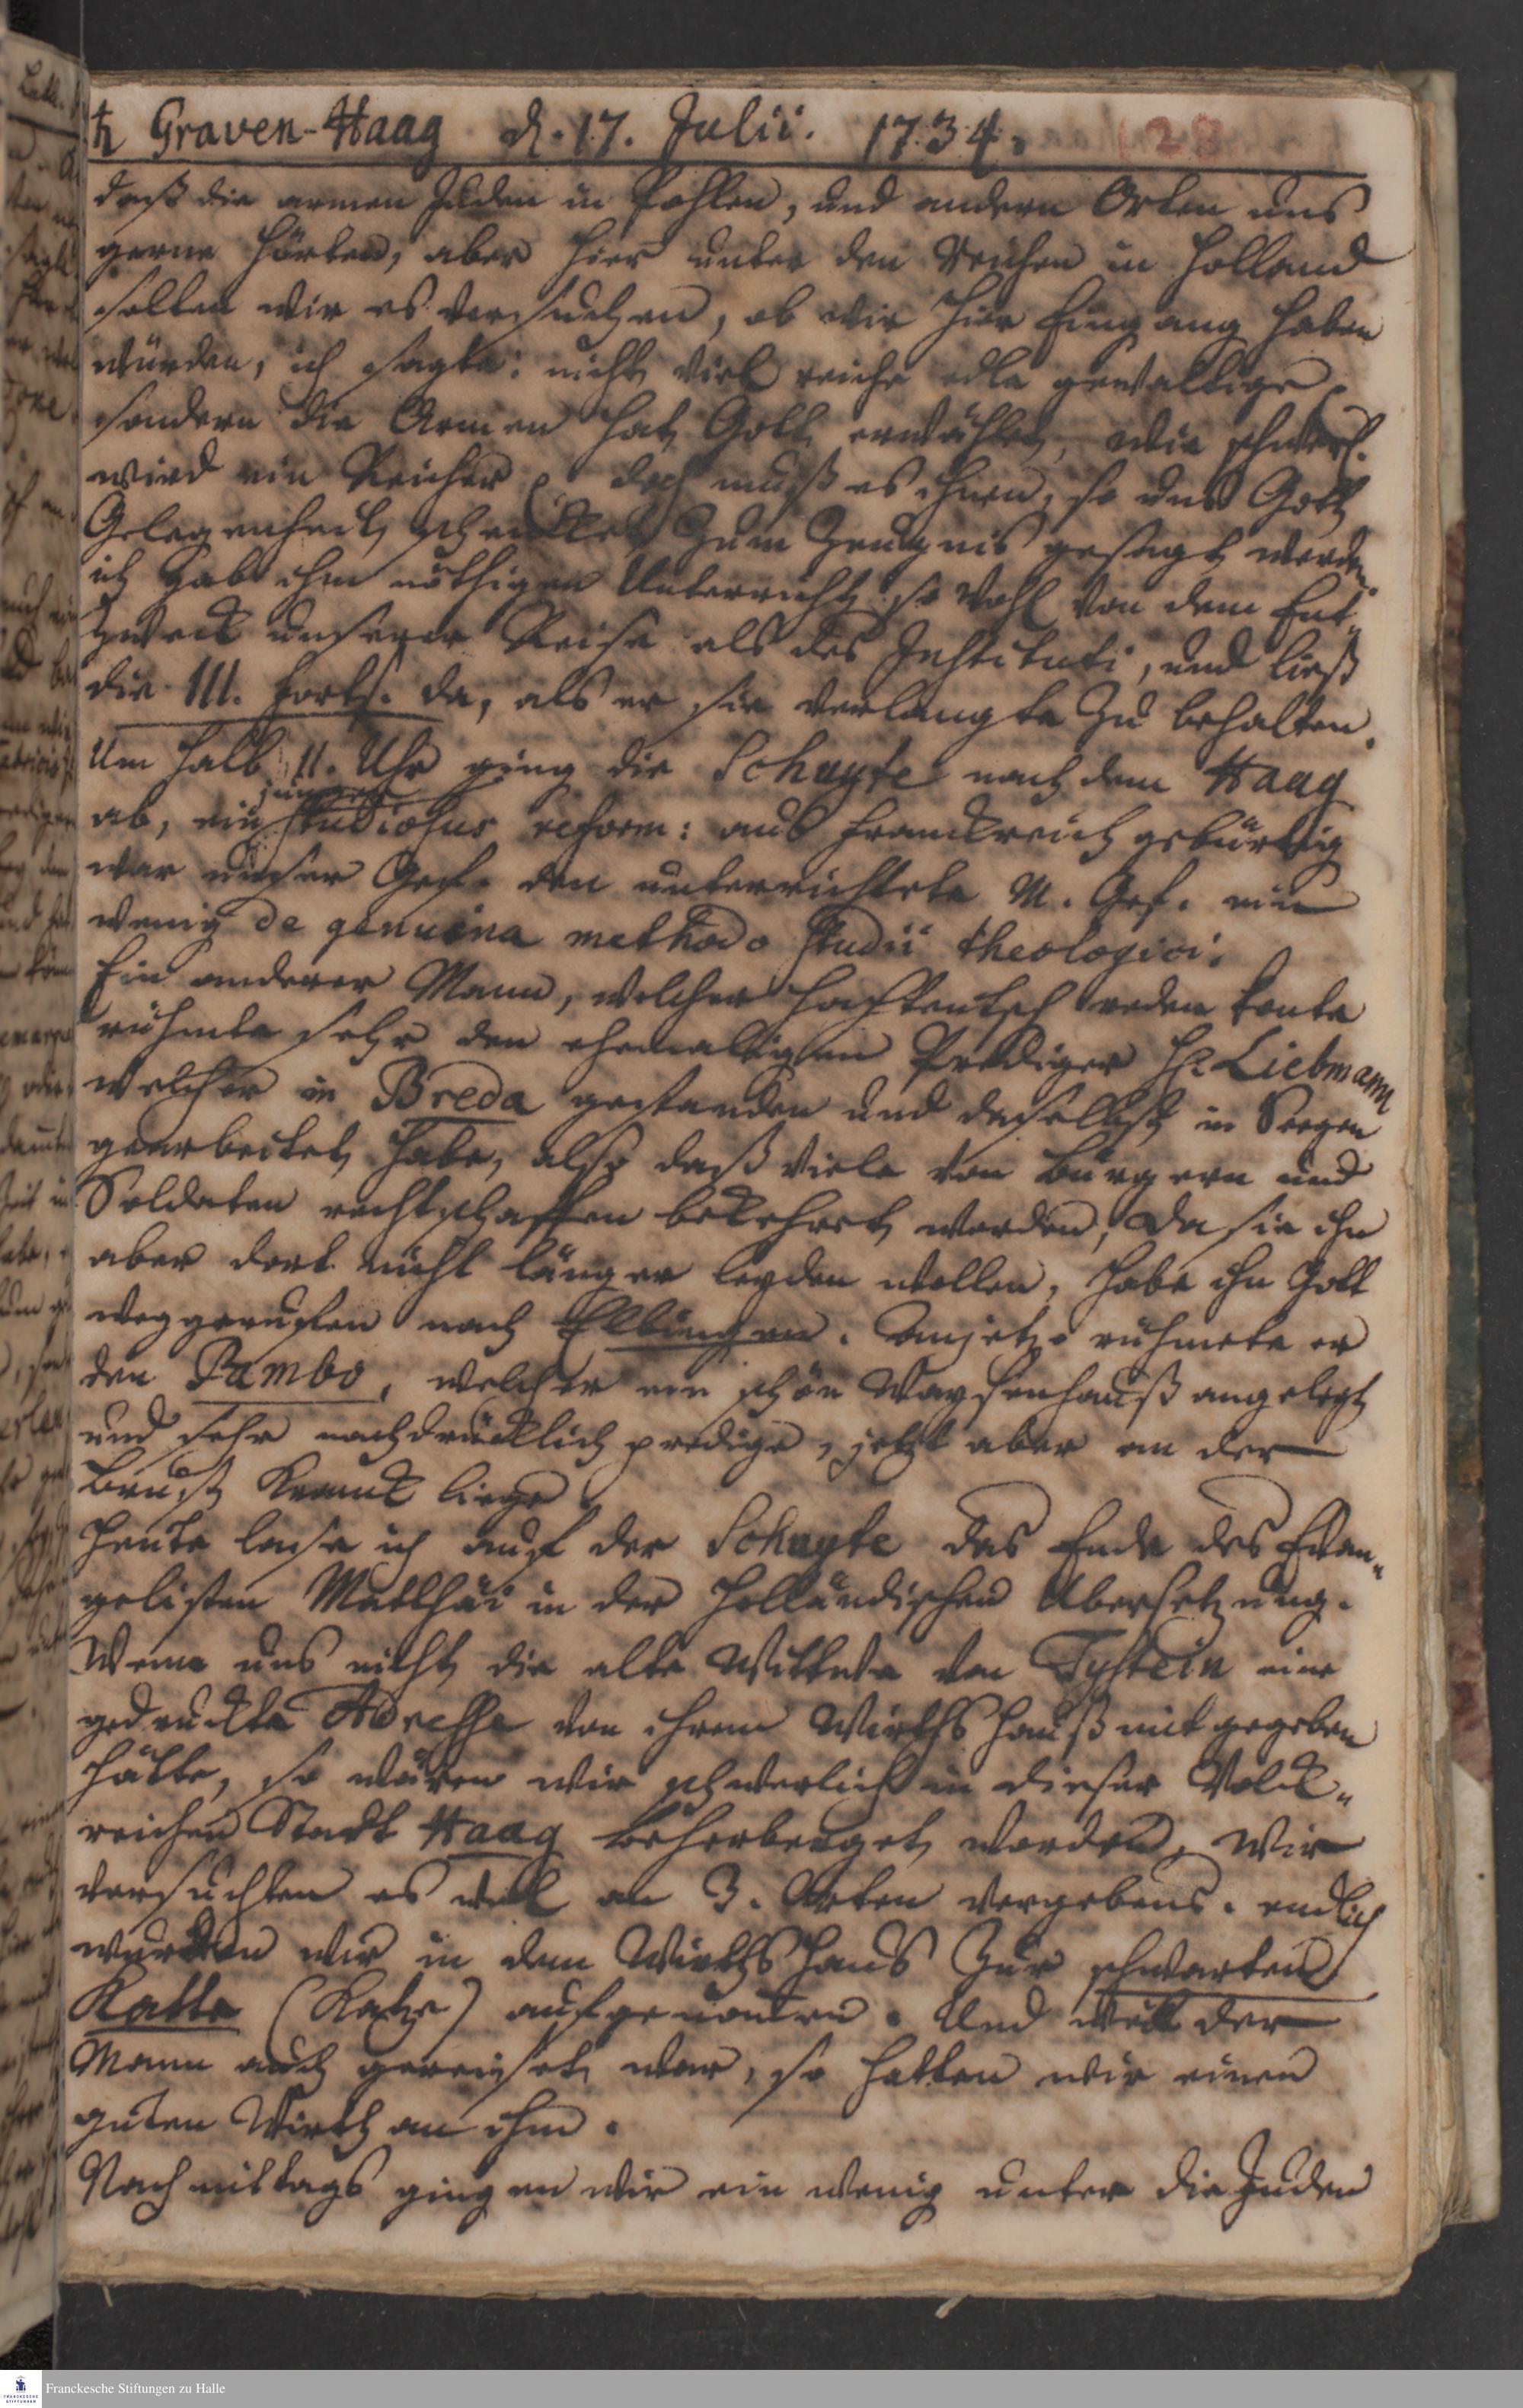 ♄ Graven-Haag d. 17. Julii. 1734. 128
daß die armen Juden in Pohlen, und andern Orten uns
gerne hörten, aber hier unter den Reichen in Holland
solten wir es versuchen, ob wir hier Eingang haben
würden, ich sagte: nicht viel reiche edle gewaltige
sondern die Armen hat Gott erwählet, wie schwerl.
wird ein Reicher doch muß es ihnen, so uns Gott
Gelegenheit schencket zum Zeugnis gesagt werden.
ich gab ihm nöthigen Unterricht so wohl von dem End
zweck unserer Reise als des Instituti, und ließ
die III. Forts. da, als er sie verlangte zu behalten.
Um halb 11. Uhr ging die Schuyte nach dem Haag
ab, ein junger Studiosus reform: aus Franckreich gebürtig
war unser Gef. den unterrichtete M. Gef. ein
wenig de genuina methodo studii theologici.
Ein anderer Mann, welcher hochteutsch reden konte
rühmte sehr den ehemaligen Prediger H. Liebmann
welcher in Breda gestanden und daselbst in Seegen
gearbeitet habe, also daß viele von Bürgern und
Soldaten rechtschaffen bekehret worden, da sie ihn
aber dort nicht länger leyden wollen, habe ihn Gott
weggeruffen nach Elbingen. Anjetzo rühmete er
den Pambo, welcher ein schön Waysenhauß angelegt
und sehr nachdrücklich predige, jetzt aber an der
Brust Kranck liege
Heute lase ich auf der Schuyte das Ende des Evan„
gelisten Matthäi in der Holländischen Ubersetzung.
Wenn uns nicht die alte Wittwe von Tystein eine
gedruckte Adresse von ihrem Wirthshauß mit gegeben
hätte, so wären wir schwerlich in dieser Volck„
reichen Stadt Haag beherberget worden, Wir
versuchten es wol an 3. Orten vergebens. endlich
wurden wir in dem Wirthshaus zur schwarten
Katte (Katze) aufgenomen. Und weil der
Mann auch gereiset war, so hatten wir einen
guten Wirth an ihm.
Nachmittags gingen wir ein wenig unter die Juden
Franckesche Stiftungen zu Halle